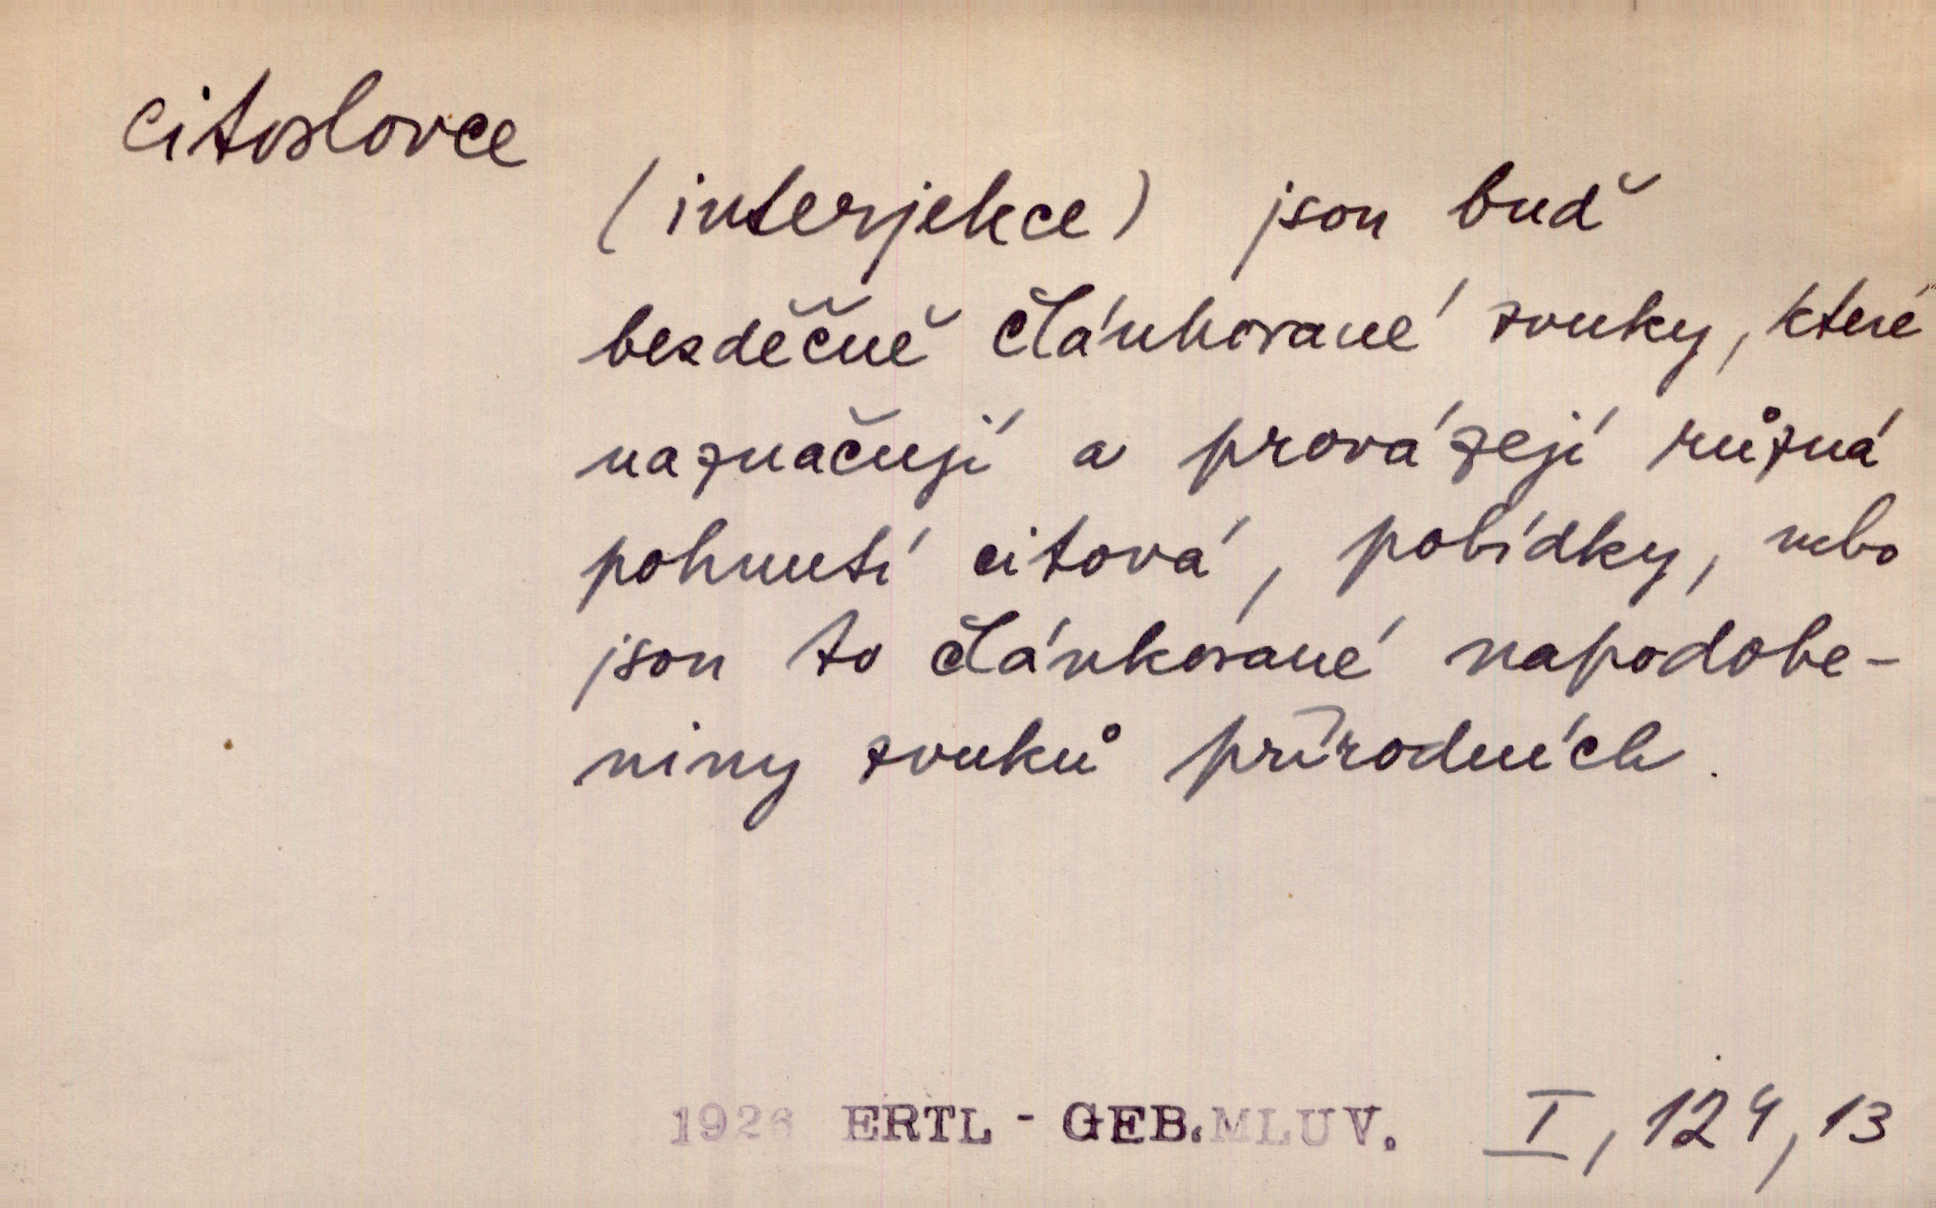 citoslovce
(interjekce) jsou buď
bezděčně článkované zvuky, které
naznačují a provázejí různá
pohnutí citová, pobídky, nebo
jsou to článkované napodobe-
niny zvuků přírodních.
1926 ERTL - GEB. MLUV. I, 124, 13